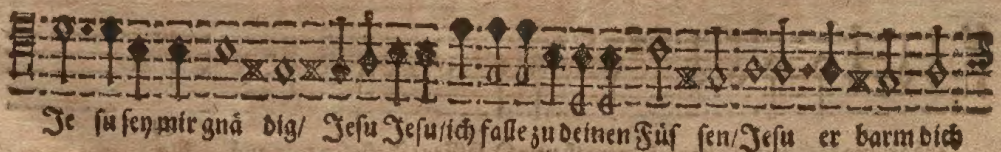 Je ſu ſey mir gnä dig/ Jeſu Jeſu/ich falle zu deinen Füſ ſen/Jeſu er barm dich